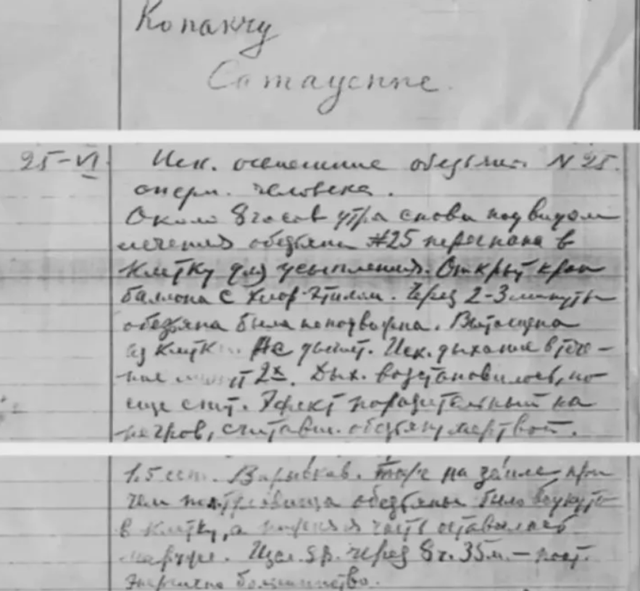 Копакчу
25-VI Иск. осеменение обезьян. N 25.
сперм. человека.
Около 8 часов утра снова под видом
лечения обезьяна #25 перегнана в
клетку для усыпления. Открыт кран
баллона с хлор-этилом. Через 2-3 минуты
обезьяна была неподвижна. Вытащена
из клетки. Не дышит. Иск. дыхание в тече-
ние 2х. Дых. возстановилось, но
еще спит. Эффект поразительный на
негров, считавш. обезьяну мертвой.
1.5 на земле при
чем туловища обезьяны было
в клетку, а часть оставалась
наружу. через 8 ч. 35 м. –
большинство.